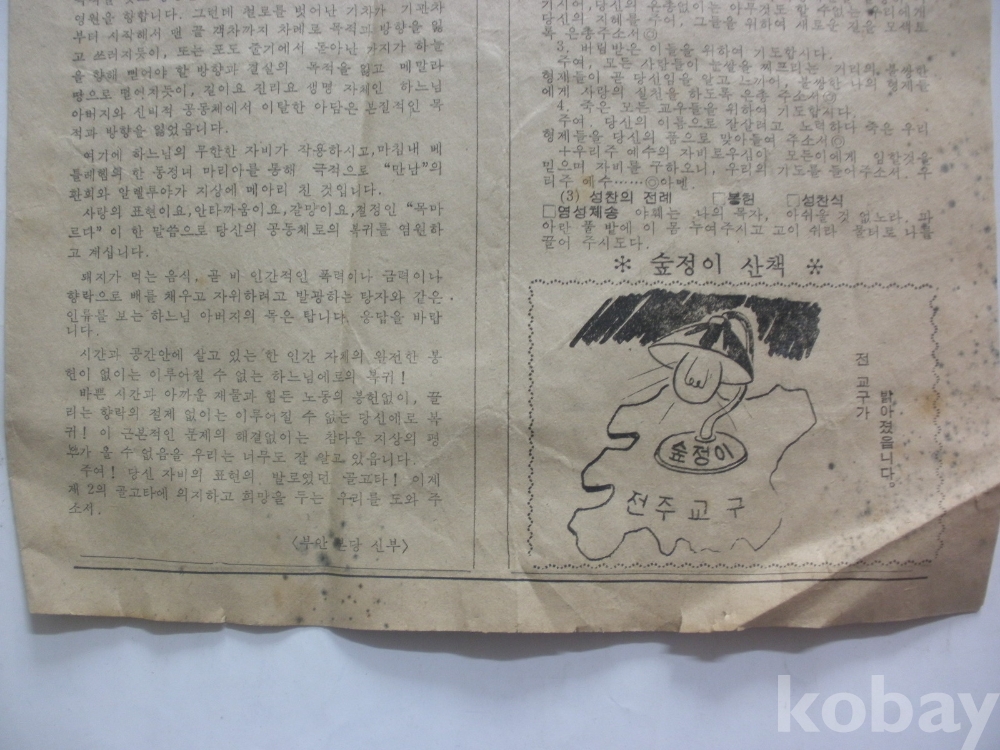 영원을 향합니다. 그런데 철로를 벗어난 기차가 기관차
부터 시작해서 맨 끝 객차까지 차례로 목적과 방향을 잃
고 쓰러지듯이, 또는 포도 줄기에서 돋아난 가지가 하늘
을 향해 뻗어야 할 방향과 결실의 목적을 잃고 메말라
땅으로 떨어지듯이, 길이요 진리요 생명 자체인 하느님
아버지와 신비적 공동체에서 이탈한 아담은 본질적인 목
적과 방향을 잃었읍니다.
여기에 하느님의 무한한 자비가 작용하시고,마침내 베
틀레헴의 한 동정녀 마리아를 통해 극적으로 “만남”의
환희와 알렐루야가 지상에 메아리 친 것입니다.
사랑의 표현이요,안타까움이요,갈망이요,절정인 “목마
르다” 이 한 말씀으로 당신의 공동체로의 복귀를 염원하
고 계십니다.
돼지가 먹는 음식, 곧 바 인간적인 폭력이나 금력이나
향락으로 배를 채우고 자위하려고 발광하는 탕자와 같은
인류를 보는 하느님 아버지의 목은 탑니다. 응답을 바랍
니다.
시간과 공간안에 살고 있는 한 인간 자체의 완전한 봉
헌이 없이는 이루어질 수 없는 하느님에로의 복귀!
바쁜 시간과 아까운 재물과 힘든 노동의 봉헌없이, 끌
리는 향락의 절제 없이는 이루어질 수 없는 당신에로 복
귀! 이 근본적인 문제의 해결없이는 참다운 지상의 평
화가 올 수 없음을 우리는 너무도 잘 알고 있읍니다.
주여! 당신 자비의 표현의 발로였던 골고타! 이제
제 2의 골고타에 의지하고 희망을 두는 우리를 도와 주
소서.
〈부안 본당 신부〉
기시여,당신의 은총없이는 아무것도 할 수없는 우리에게
당신의 지혜를 주어, 그들을 위하여 새로운 길을 모색토
록 은총주소서◎
3. 버림받은 이들을 위하여 기도합시다.
주여, 모든 사람들이 눈살을 찌프리는 거리의 불쌍한
형제들이 곧 당신임을 알고 느끼어, 불쌍한 나의 형제들
에게 사랑의 실천을 하도록 은총 주소서◎
4. 죽은 모든 교우들을 위하여 기도합시다.
주여, 당신의 이름으로 잘살려고 노력하다 죽은 우리
형제들을 당신의 품으로 맞아들여 주소서◎
+우리주 예수의 자비로우심이 모든이에게 임할것을
믿으며 자비를 구하오니, 우리의 기도를 들어주소서. 우
리주 예수……◎아멘.
(3) 성찬의 전례 □봉헌 □성찬식
□영성체송 야훼는 나의 목자, 아쉬울 것 없노라. 파
아란 풀 밭에 이 몸 누여주시고 고이 쉬라 물터로 나를
끌어 주시도다.
※ 숲정이 산책 ※
전 교구가
밝아졌읍니다.
숲정이
전주교구
kobay